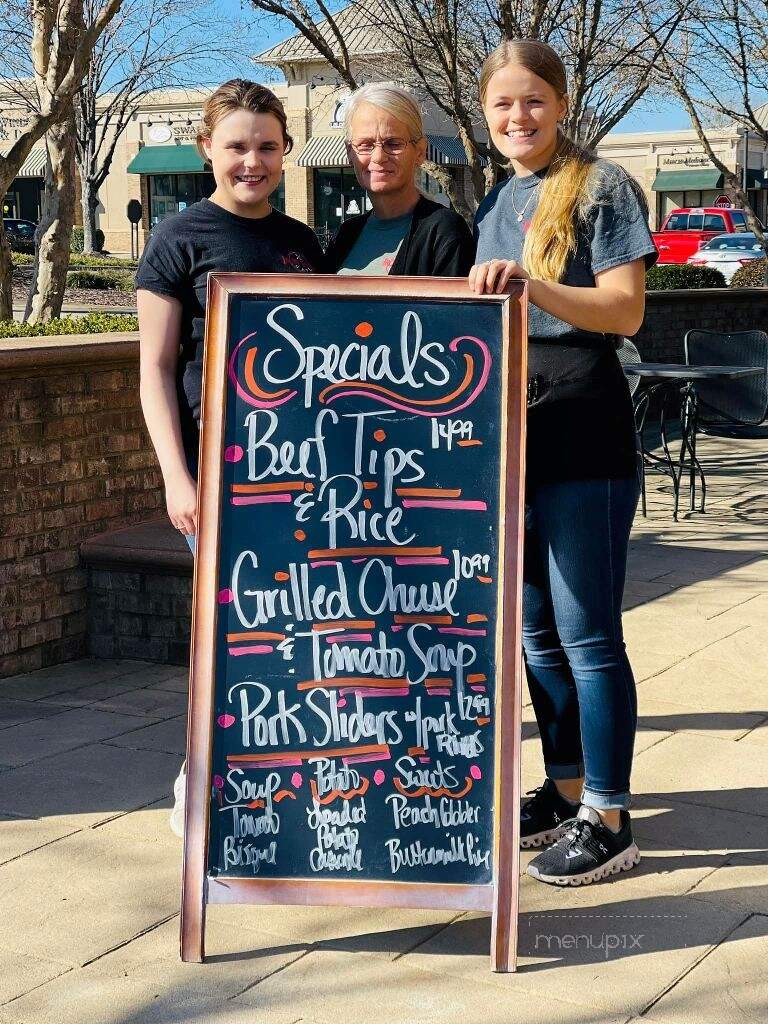 SWA
Specials
Beef Tips 14.99
& Rice
Grilled Cheese 10.99
& Tomato Soup
Pork Sliders w/pork 12.99
Rinds
Soup Potato Sweets
Tomato Loaded Peach Cobbler
Bisque Potato Buttermilk Pie
Casserole
menupix